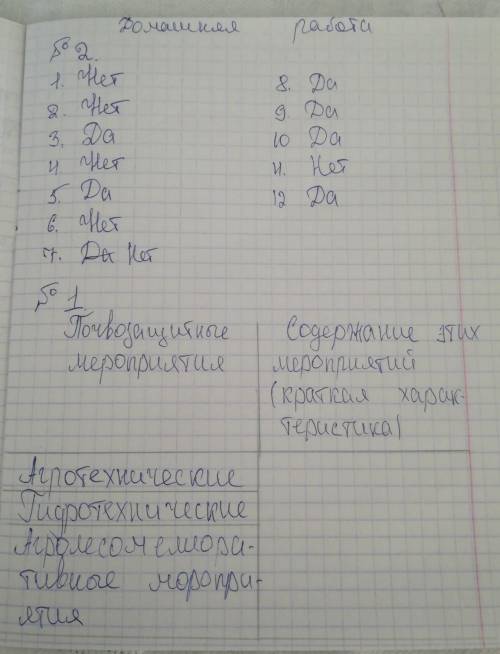 Домашняя работа
№ 2.
1. Нет
2. Нет
3. Да
4. Нет
5. Да
6. Нет
7. Да Нет
8. Да
9. Да
10 Да
11. Нет
12 Да
№ 1
Почвозащитные
мероприятия
Содержание этих
мероприятий
(краткая харак-
теристика)
Агротехнические
Гидротехнические
Агролесомелиора-
тивные меропри-
ятия